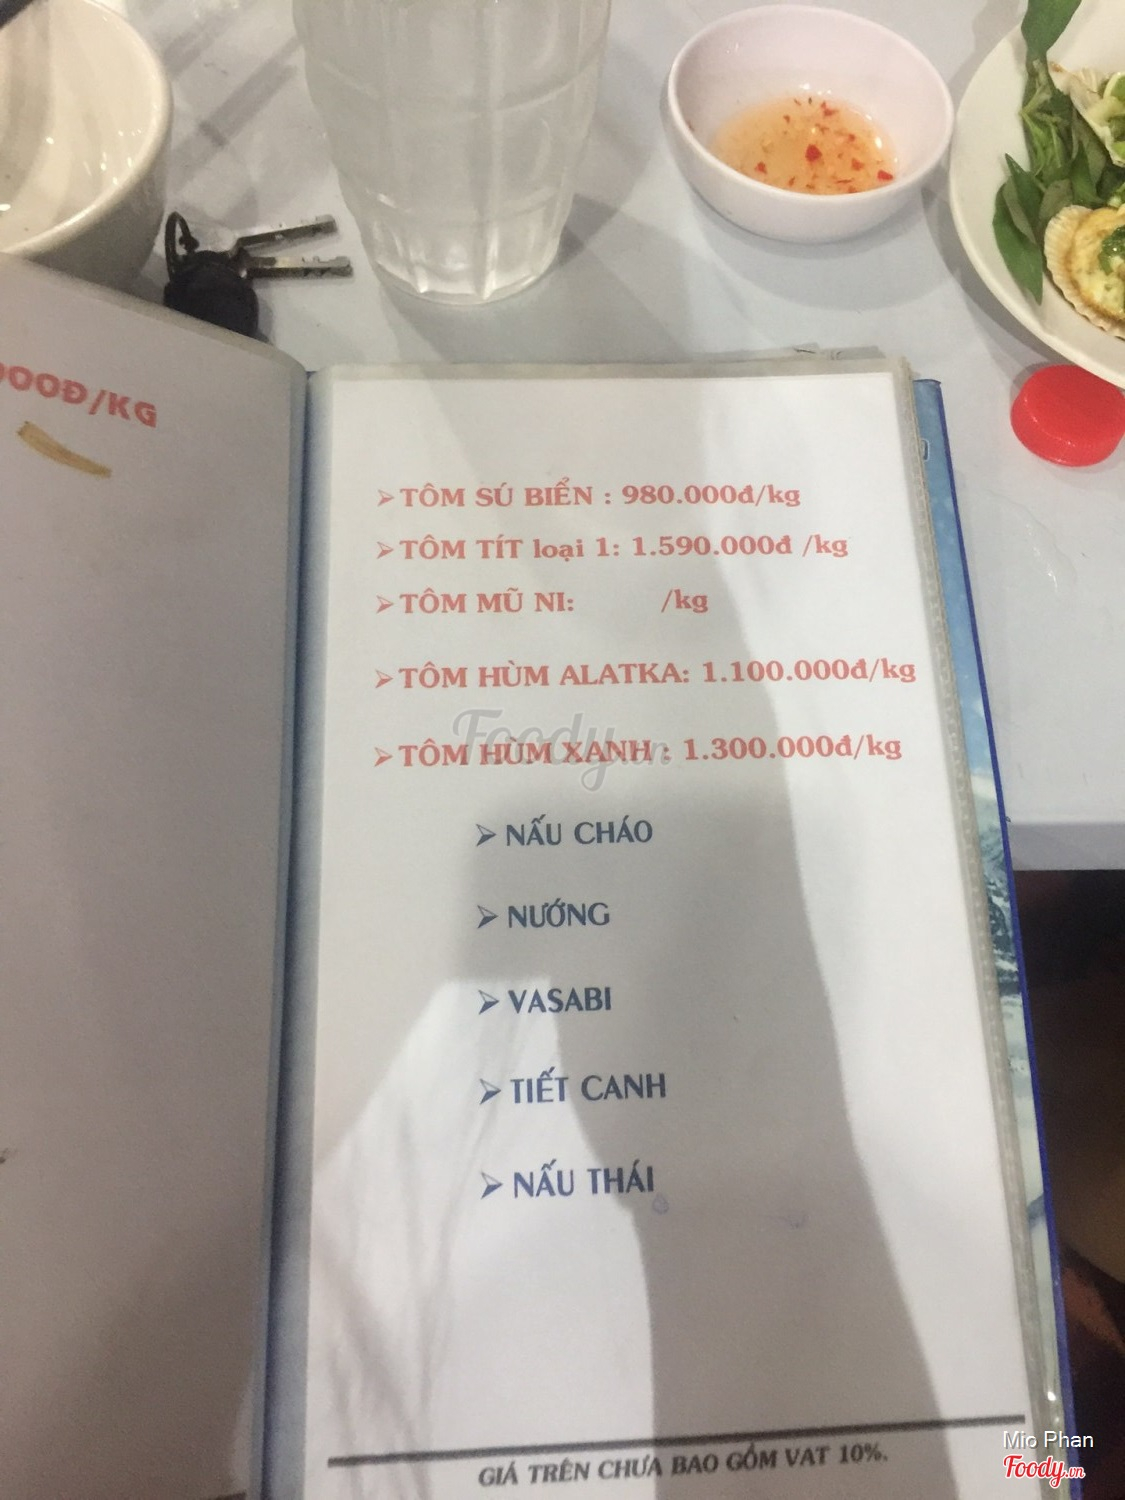 000Đ/KG
➢TÔM SÚ BIỂN : 980.000đ/kg
➢TÔM TÍT loại 1: 1.590.000đ /kg
➢TÔM MŨ NI: /kg
➢TÔM HÙM ALATKA: 1.100.000đ/kg
➢TÔM HÙM XANH : 1.300.000đ/kg
Foody.vn
➢ NẤU CHÁO
➢ NƯỚNG
➢ VASABI
➢ TIẾT CANH
➢ NẤU THÁI
GIÁ TRÊN CHƯA BAO GỒM VAT 10%.
Mio Phan
Foody.vn